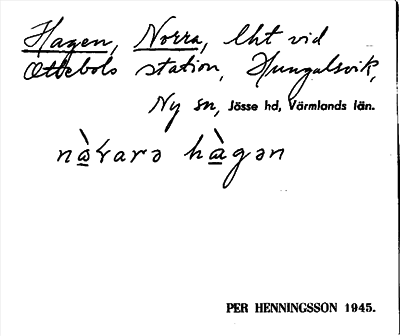 Hagen, Norra, lht vid
Ottebols station, Hungalsvik,
Ny sn, Jösse hd, Värmlands län.
nàrarə hàgən
PER HENNINGSSON 1945.